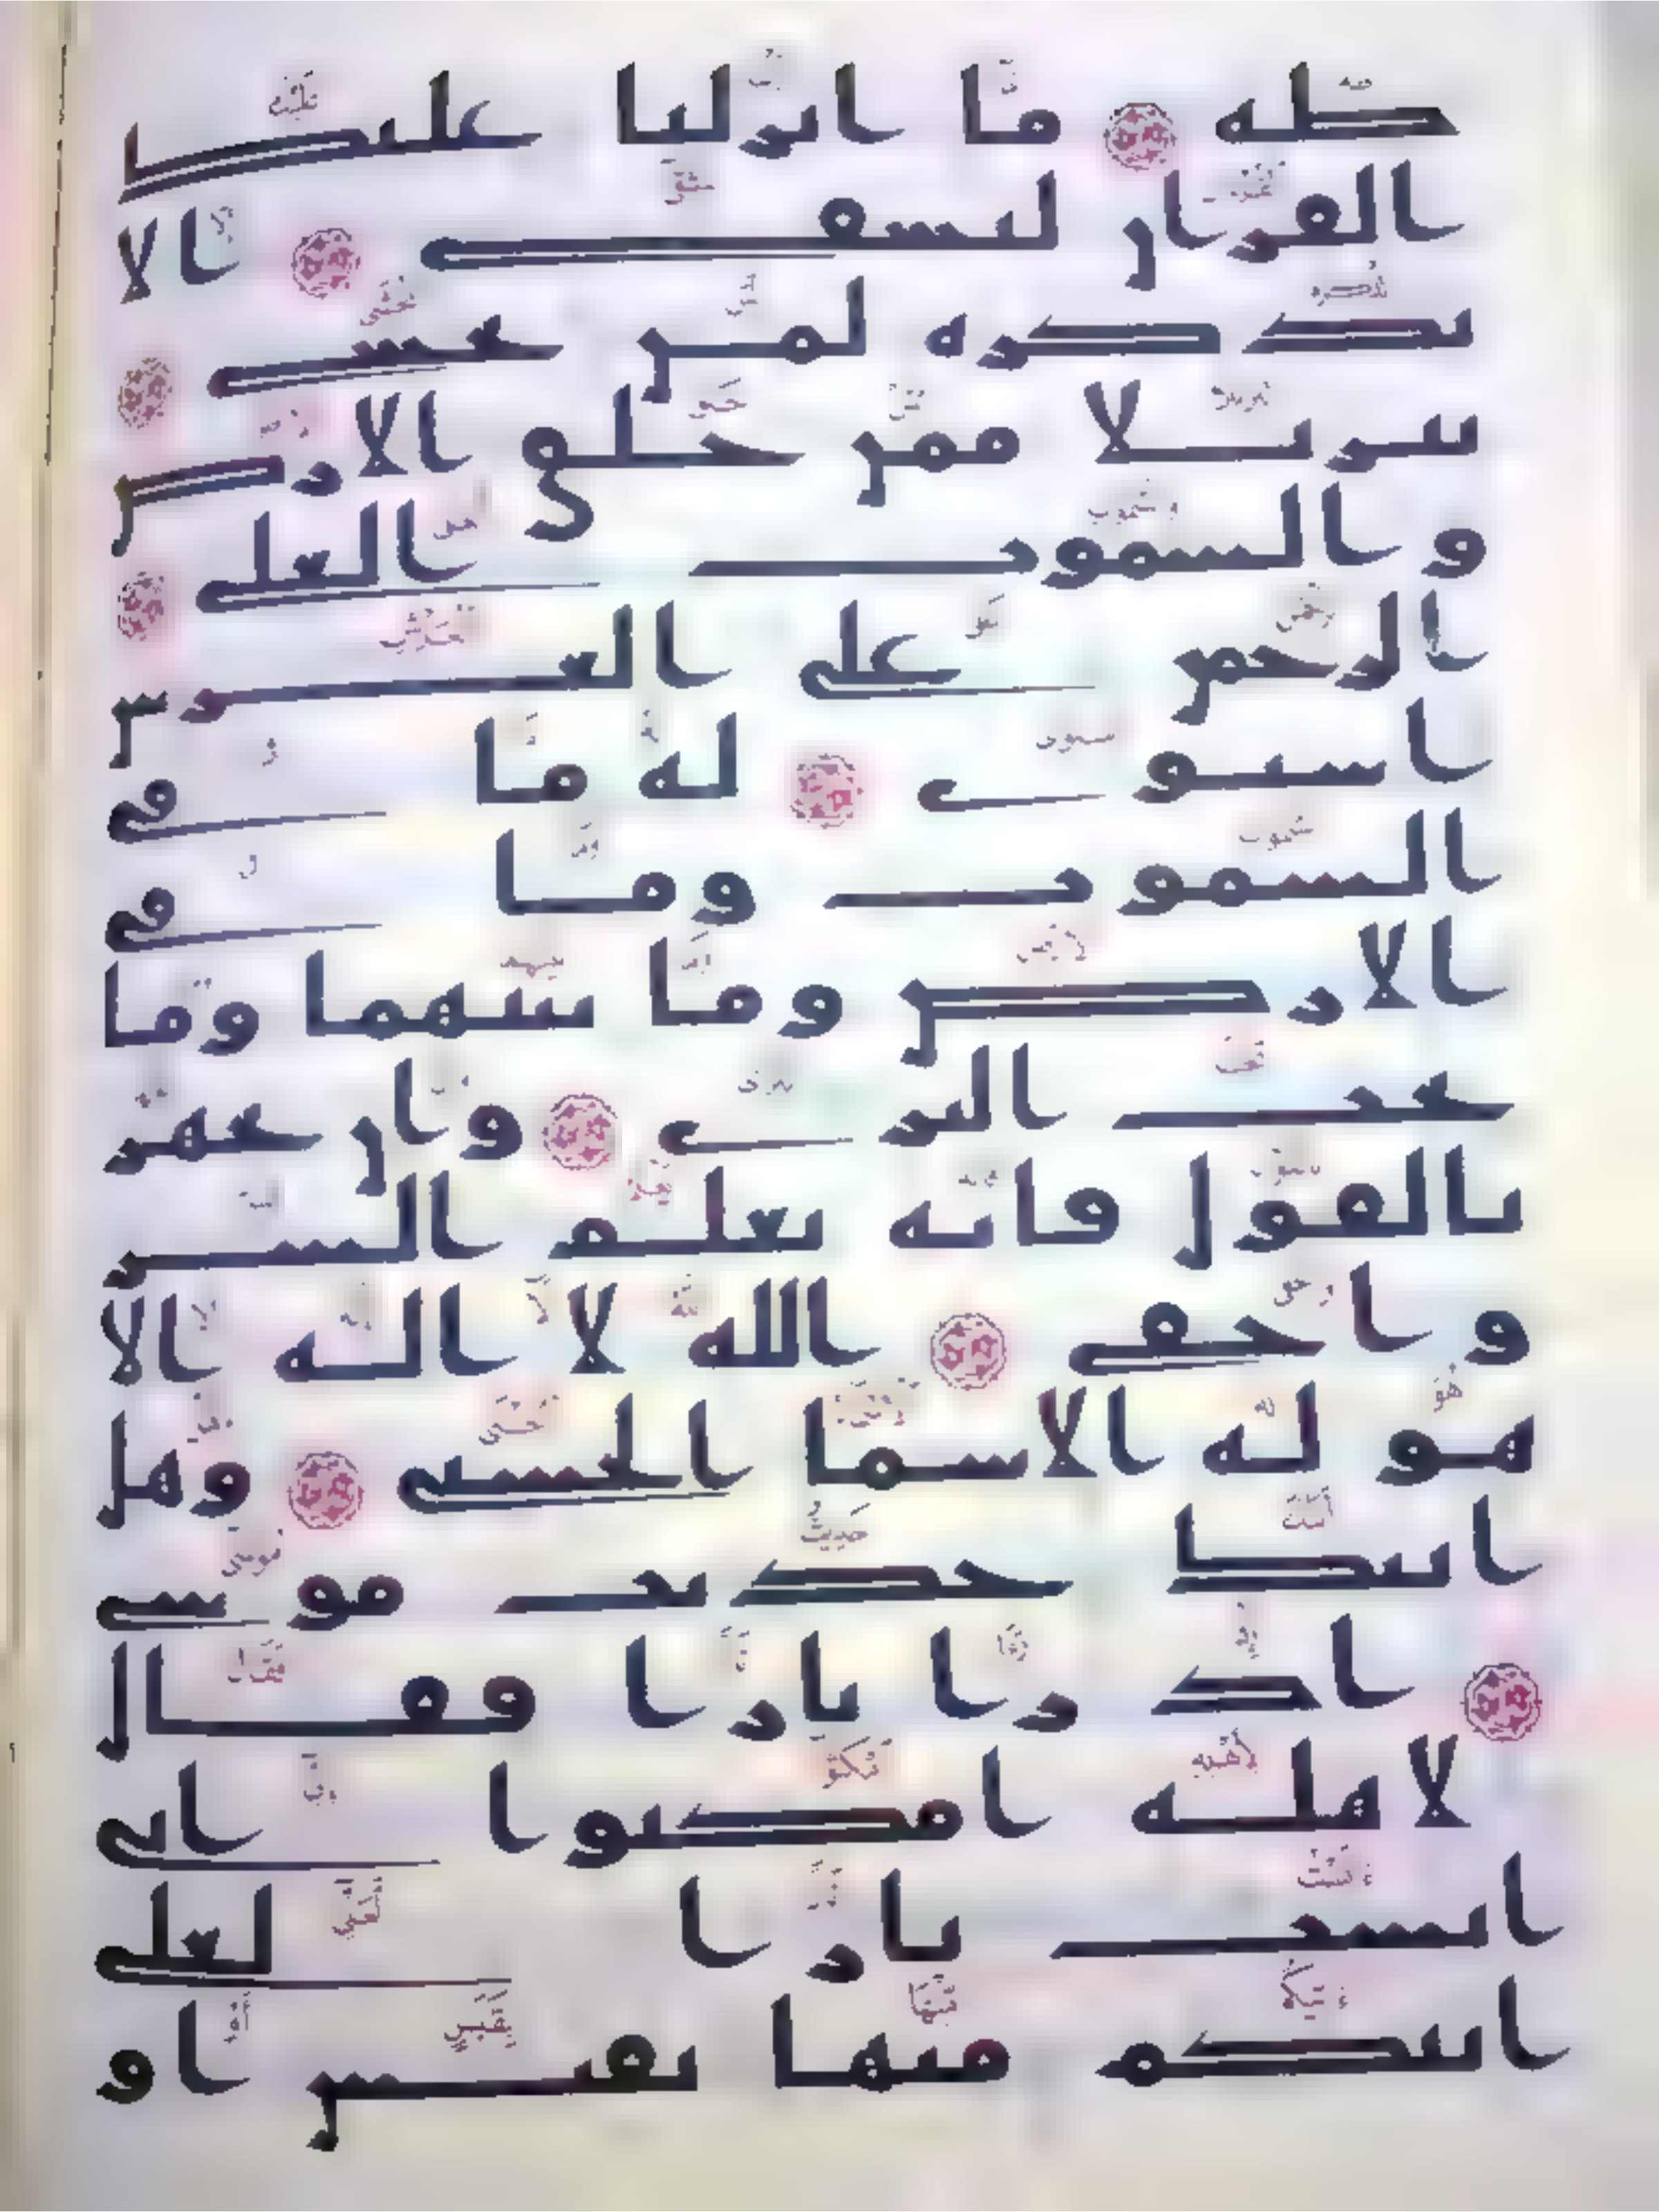 طه ما انزلنا عليك
القران لتشقى الا
تذكرة لمن يخشى
تنزيلا ممن خلق الارض
والسموت العلى
الرحمن على العرش
استوى له ما فى
السموت وما فى
الارض وما بينهما وما
تحت الثرى وان تجهر
بالقول فانه يعلم السر
واخفى الله لا اله الا
هو له الاسما الحسنى وهل
اتيك حديث موسى
اذ را نارا فقال
لاهله امكثوا انى
انست نارا لعلى
اتيكم منها بقبس او